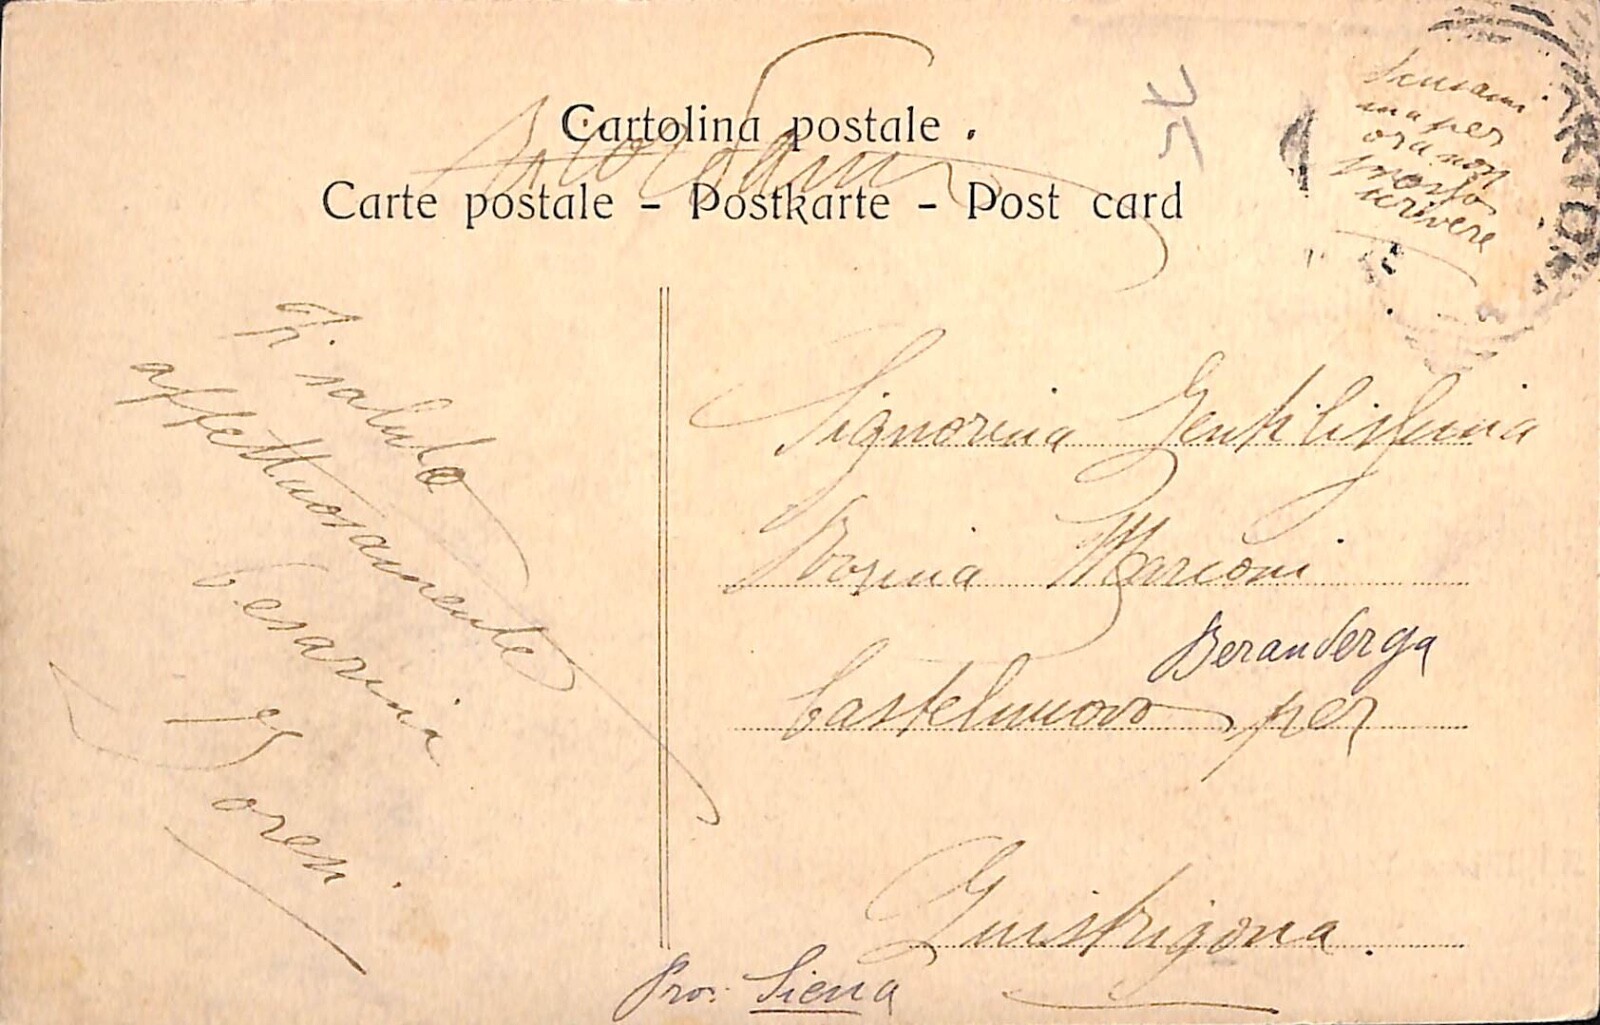 Cartolina postale .
Carte postale – Postkarte – Post card
Ricordami
75
Scusami
ma per
ora non
posso
scrivere
Ti saluto
affettuosamente
Cesarina
Signorina Gentilissima
Rosina Marconi
Berardenga
Castelnuovo per
Guistrigona.
Pro: Siena